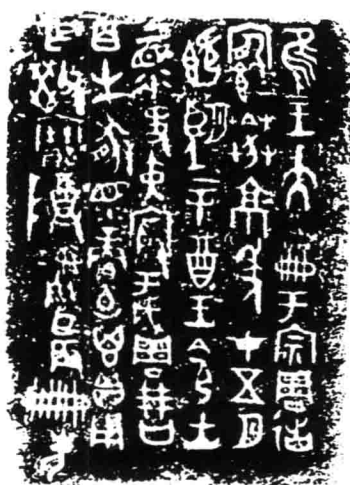 隹王大龠于宗周
京年才五月
既望辛酉王令士
上眔史寅于成周
百生豚眔賞卣鬯貝用
乍父癸寶尊彝臣辰冊